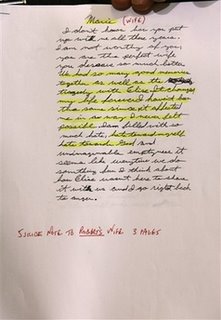 Marie (WIFE)
I don't know how you put
up with me all these years.
I am not worthy of you,
you are the perfect wife
you deserve so much better.
We had so many good memories
together as well as the
tragedy with Elise. It changed
my life forever I have not been
the same since it affected
me in so way I never felt
possible. I am filled with so
much hate, hate toward myself
hate toward God and
unimaginable emptyness it
seems like everytime we do
something fun I think about
how Elise wasn't here to share
it with us and I go right back
to anger.
SUICIDE NOTE TO WIFE 3 PAGES